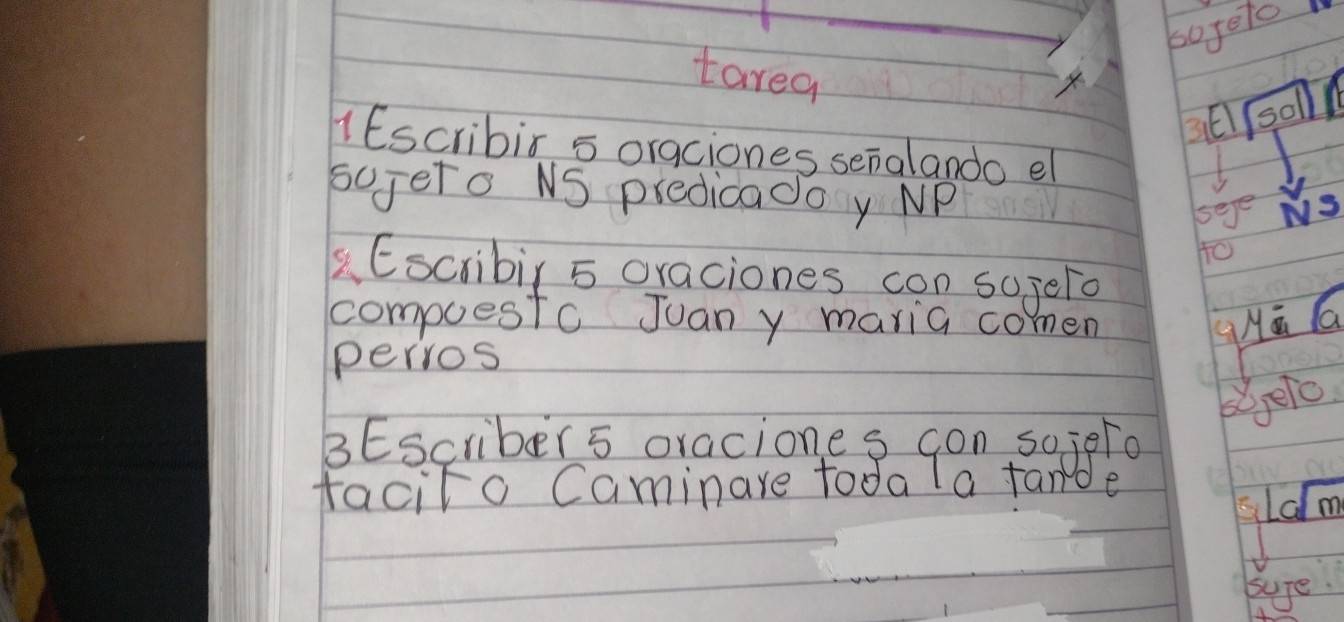 tarea
1 Escribir 5 oraciones señalando el
sujeto NS predicado y NP
2 Escribir 5 oraciones con sujeto
compuesto Juan y maria comen
perros
3 Escriber 5 oraciones con sujeto
tacito Caminare toda la tande
sujeto
3 El sol
seje
to
NS
4 Mi
sujeto
5 La m
suje